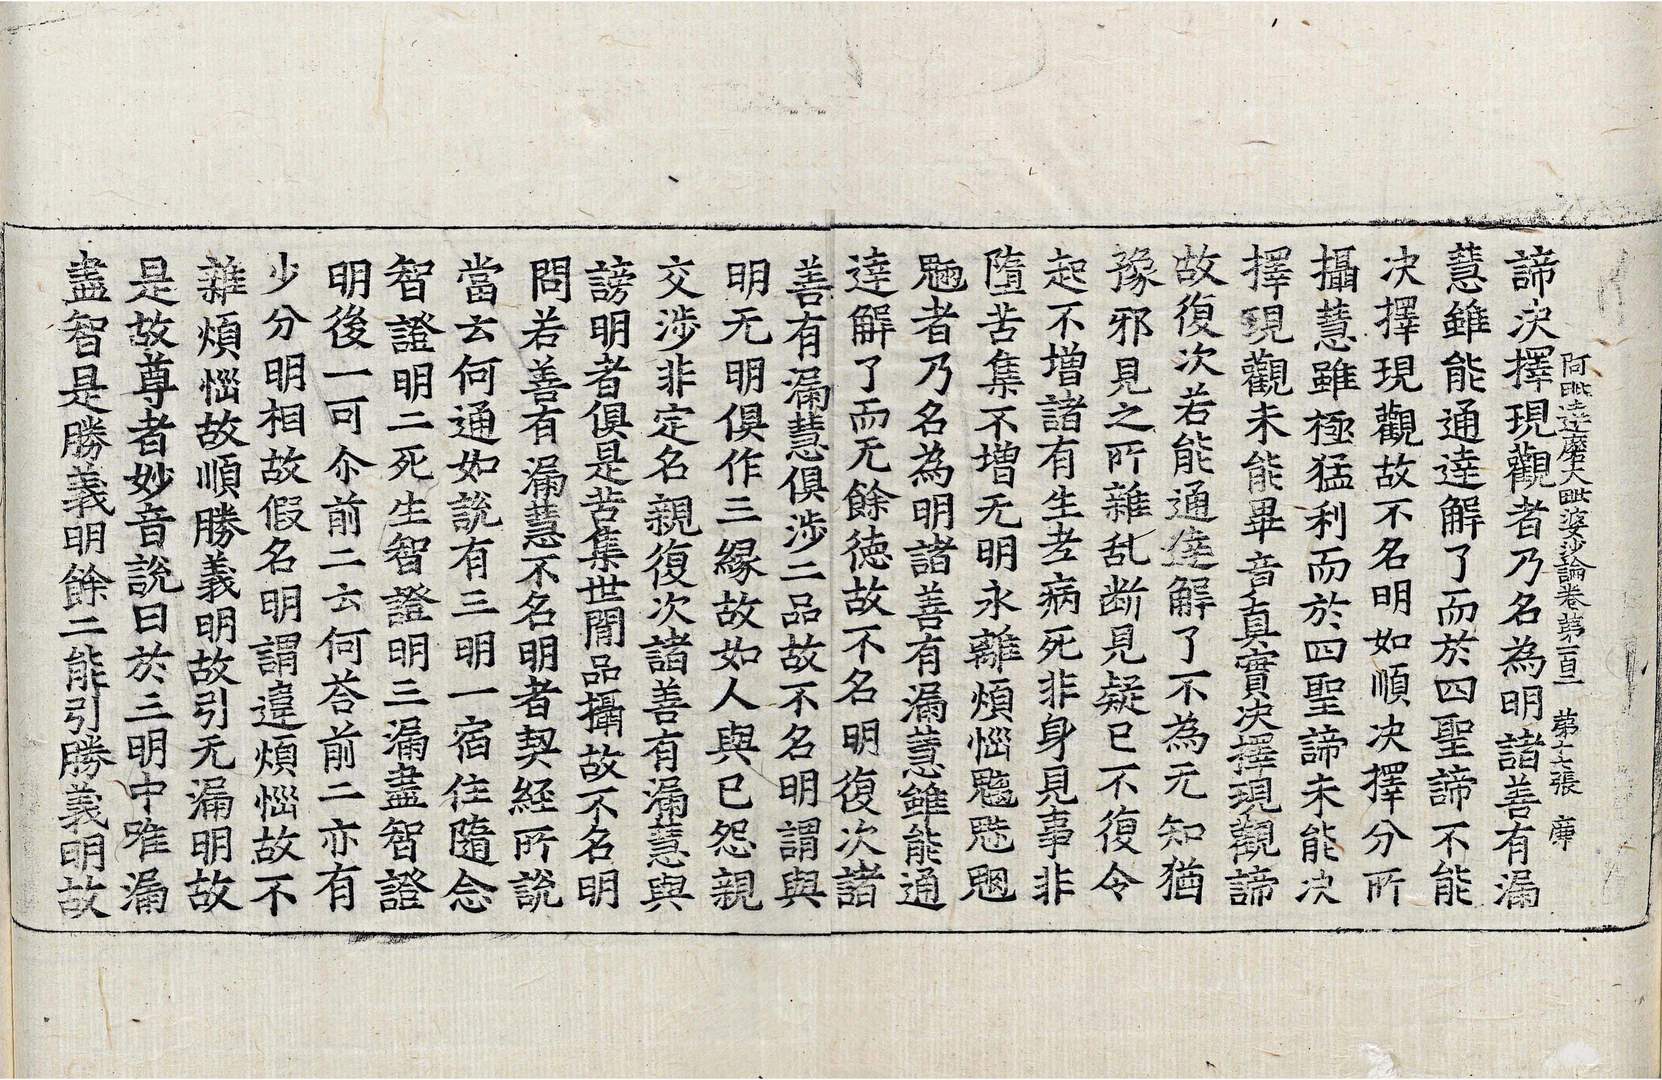 阿毗達磨大毗婆沙論卷第一百二　第十七張　庫
諦決擇現觀者乃名為明諸善有漏
慧雖能通達解了而於四聖諦不能
決擇現觀故不名明如順決擇分所
攝慧雖極猛利而於四聖諦未能決
擇現觀未能畢音真實決擇現觀諦
故復次若能通達解了不為无知猶
豫邪見之所雜乱断見疑已不復令
起不增諸有生老病死非身見事非
墮苦集不增无明永離煩惱魑魅魍
魎者乃名為明諸善有漏慧雖能通
達解了而无餘德故不名明復次諸
善有漏慧俱涉二品故不名明謂與
明无明俱作三緣故如人與已怨親
交涉非定名親復次諸善有漏慧與
謗明者俱是苦集世間品攝故不名明
問若善有漏慧不名明者契經所說
當云何通如說有三明一宿住隨念
智證明二死生智證明三漏盡智證
明後一可尒前二云何荅前二亦有
少分明相故假名明謂違煩惱故不
雜煩惱故順勝義明故引无漏明故
是故尊者妙音說曰於三明中唯漏
盡智是勝義明餘二能引勝義明故